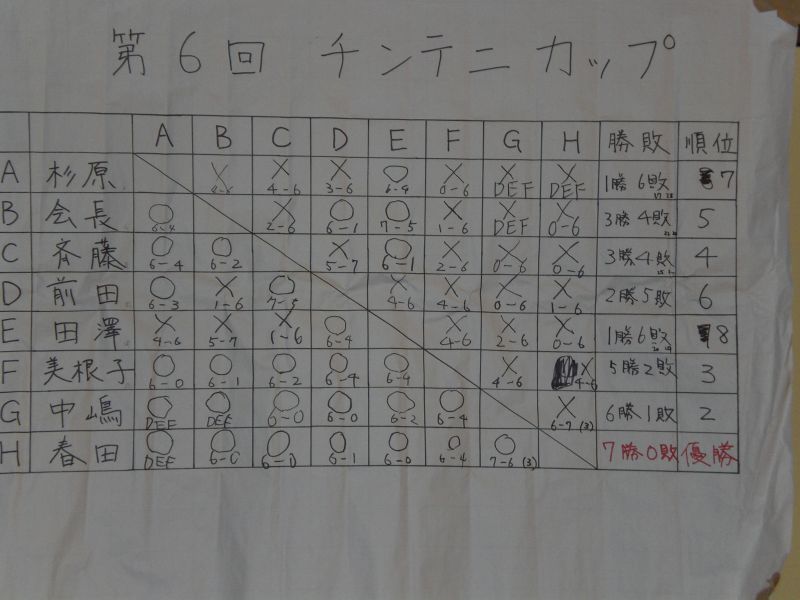 第6回 チンテニカップ
A B C D E F G H 勝敗 順位
A 杉原 × × 4-6 × 3-6 ○ 6-4 × 0-6 × DEF × DEF 1勝6敗 7
B 会長 ○ 6-4 × 2-6 ○ 6-1 ○ 7-5 × 1-6 × DEF × 0-6 3勝4敗 5
C 斉藤 ○ 6-4 ○ 6-2 × 5-7 ○ 6-1 × 2-6 × 0-6 × 0-6 3勝4敗 4
D 前田 ○ 6-3 × 1-6 ○ 7-5 × 4-6 × 4-6 × 0-6 × 1-6 2勝5敗 6
E 田澤 × 4-6 × 5-7 × 1-6 ○ 6-4 × 4-6 × 2-6 × 0-6 1勝6敗 8
F 美根子 ○ 6-0 ○ 6-1 ○ 6-2 ○ 6-4 ○ 6-4 × 4-6 × 4-6 5勝2敗 3
G 中嶋 ○ DEF ○ DEF ○ 6-0 ○ 6-0 ○ 6-2 ○ 6-4 × 6-7(3) 6勝1敗 2
H 春田 ○ DEF ○ 6-0 ○ 6-0 ○ 6-1 ○ 6-0 ○ 6-4 ○ 7-6(3) 7勝0敗 優勝